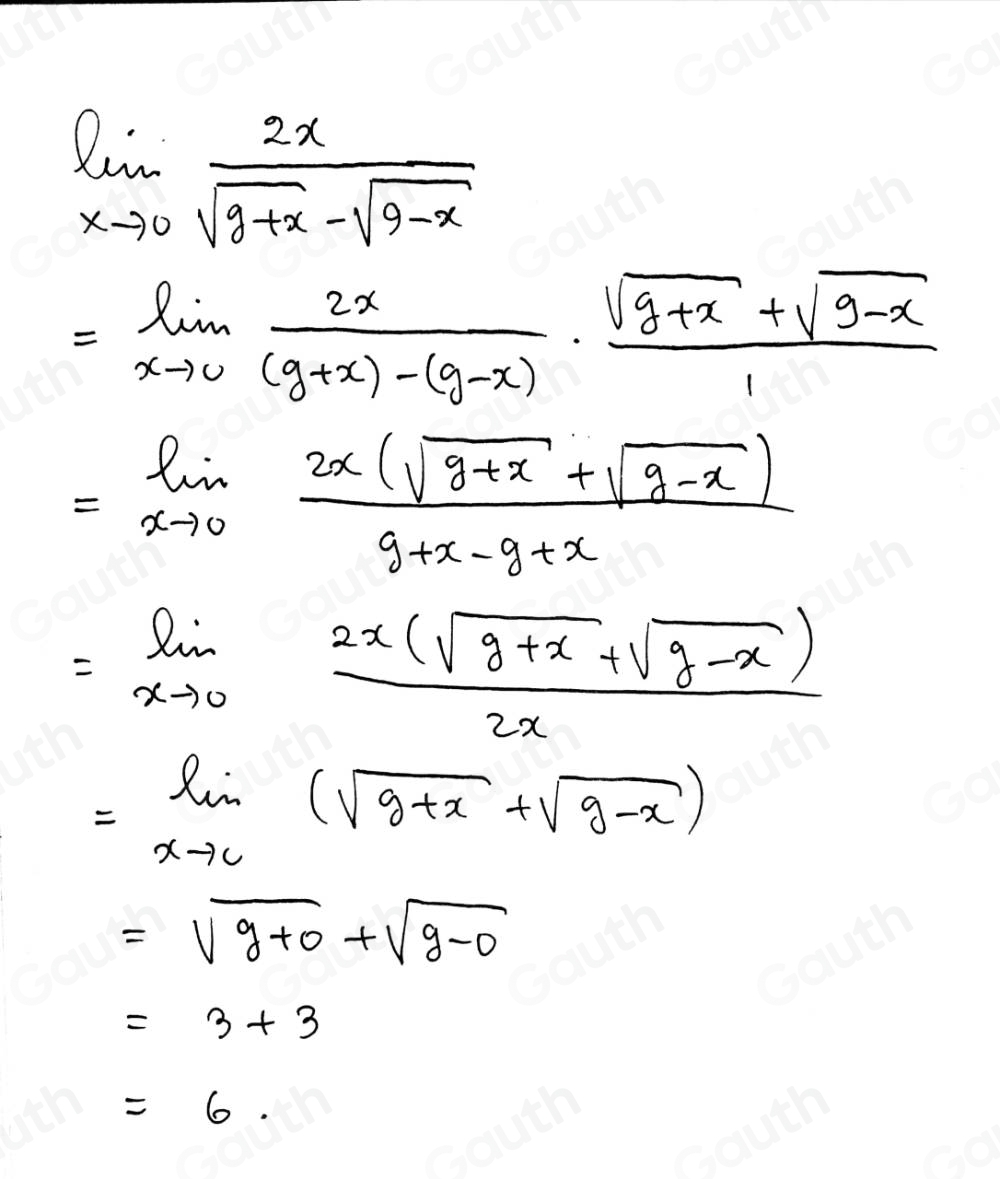 lim x→0 2x / (√(9+x) - √(9-x))
= lim x→0 2x / ((9+x) - (9-x)) · (√(9+x) + √(9-x)) / 1
= lim x→0 2x(√(9+x) + √(9-x)) / (9+x-9+x)
= lim x→0 2x(√(9+x) + √(9-x)) / 2x
= lim x→0 (√(9+x) + √(9-x))
= √(9+0) + √(9-0)
= 3+3
= 6.
Gauth